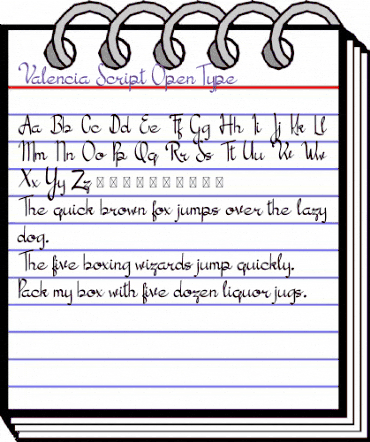 Valencia Script Open Type
Aa Bb Cc Dd Ee Ff Gg Hh Ii Jj Kk Ll
Mm Nn Oo Pp Qq Rr Ss Tt Uu Vv Ww
Xx Yy Zz
The quick brown fox jumps over the lazy
dog.
The five boxing wizards jump quickly.
Pack my box with five dozen liquor jugs.